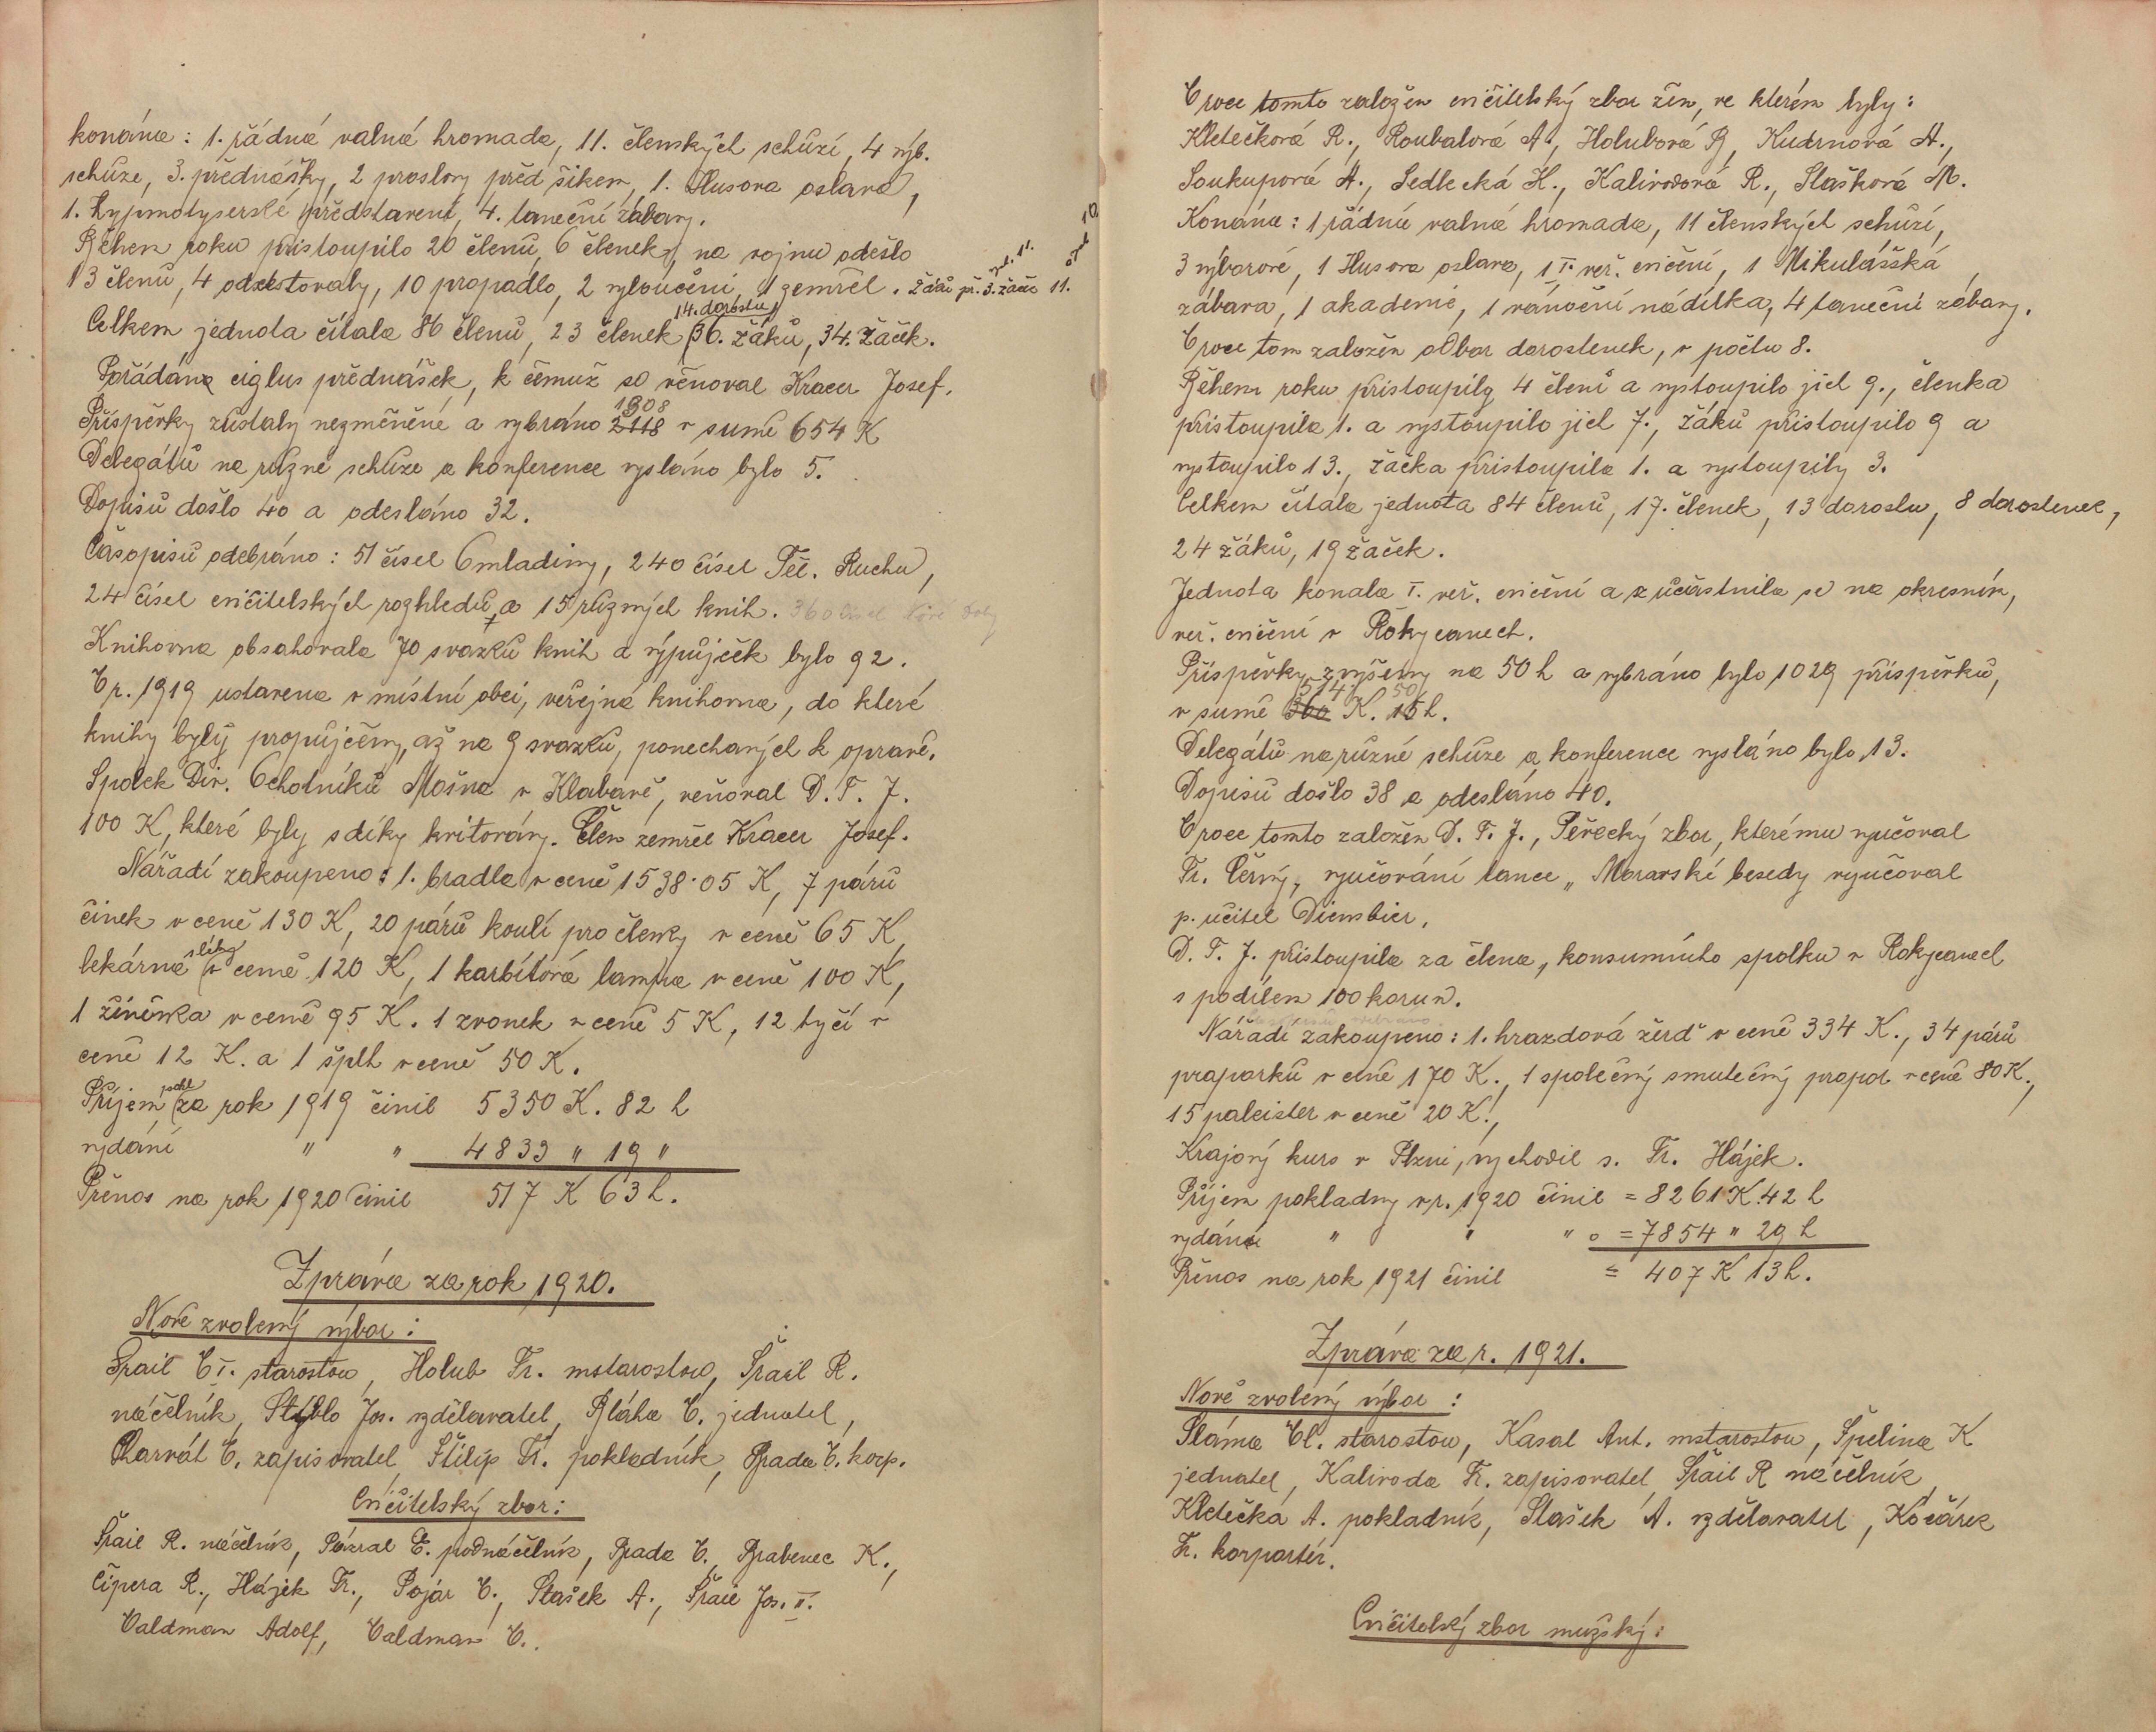 konána: 1. řádná valná hromada, 11. členských schůzí, 4 výb.
schůze, 3. přednášky, 2 proslovy před šikem, 1. Husova oslava,
1. hypmotyserské představení, 4. taneční zábavy.
Během roku přistoupilo 20 členů, 6 členek, na vojnu odešlo
13 členů, 4 odcestovaly, 10 propadlo, 2 vyloučeni, 1 zemřel. Žáků př. 3. žaček 11.
14. dorostu
Celkem jednota čítala 86 členů, 23 členek, 36. žáků, 34. žaček.
Pořádána ciglus přednášek, k čemuž se věnoval Kracer Josef.
1308
Příspěvky zůstaly nezměněné a vybráno 2118 v sumě 654 K
Delegátů na různé schůze a konference vysláno bylo 5.
Dopisů došlo 40 a odesláno 32.
Časopisů odebráno: 51 čísel Omladiny, 240 čísel Těl. Ruchu,
24 čísel cvičitelských rozhledů, a 15 různých knih. 360 čísel Nové Doby
Knihovna obsahovala 70 svazků knih a výpůjček bylo 92.
V r. 1919 ustavena v místní obci, veřejná knihovna, do které
knihy byly propůjčeny, až na 9 svazků, ponechaných k opravě.
Spolek Div. Ochotníků Mošna v Klabavě, věnoval D. T. J.
100 K, které byly s díky kvitovány. Člen zemřel Kracer Josef.
Nářadí zakoupeno: 1. bradla v ceně 1538·05 K, 7 párů
činek v ceně 130 K, 20 párů koulí pro členky v ceně 65 K,
lékárna v ceně 120 K, 1 karbitová lampa v ceně 100 K,
1 žíněnka v ceně 95 K. 1 zvonek v ceně 5 K, 12 tyčí v
ceně 12 K. a 1 šplh v ceně 50 K.
pokl
Příjem za rok 1919 činil 5350 K. 82 h
vydání " " 4833 " 19 "
Přenos na rok 1920 činil 517 K 63 h.
Zpráva za rok 1920.
Nově zvolený výbor:
Šrail V I. starostou, Holub Fr. mstarostou, Šrail R.
náčelník, Stýblo Jos. vzdělavatel, Bláha V. jednatel,
Charvát V. zapisovatel, Štilip Fr. pokladník, Brada V. korp.
Cvičitelský zbor:
Šrail R. náčelník, Pávral E. podnáčelník, Brada V., Brabenec K.,
Čipera R., Hájek Fr., Pojár V., Stašek A., Šrail Jos. II.
Valdman Adolf, Valdman V..
V roce tomto založen cvičitelský zbor žen, ve kterém byly:
Kletečková R., Roubalová A., Holubová B, Kudrnová A.,
Soukupová A., Sedlecká H., Kalivodová R., Stašková M.
Konána: 1 řádná valná hromada, 11 členských schůzí,
3 výborové, 1 Husova oslava, 1 I. veř. cvičení, 1 Mikulášská
zábava, 1 akademie, 1 vánoční nadílka, 4 taneční zábavy.
V roce tom založen odbor dorostenek, v počtu 8.
Během roku přistoupily 4 členi a vystoupilo jich 9., členka
přistoupila 1. a vystoupilo jich 7., žáků přistoupilo 9 a
vystoupilo 13., žačka přistoupila 1. a vystoupily 3.
Celkem čítala jednota 84 členů, 17. členek, 13 dorostu, 8 dorostenek,
24 žáků, 19 žaček.
Jednota konala I. veř. cvičení a zúčastnila se na okresním,
veř. cvičení v Rokycanech.
Příspěvky zvýšeny na 50 h a vybráno bylo 1029 příspěvků,
514 50
v sumě 360 K. 15 h.
Delegátů na různé schůze a konference vysláno bylo 13.
Dopisů došlo 38 a odesláno 40.
V roce tomto založen D. T. J., Pěvecký zbor, kterému vyučoval
Fr. Černý, vyučování tance „ Moravské besedy vyučoval
p. učitel Diensbier.
D. T. J. přistoupila za člena, konsumního spolku v Rokycanech
s podílem 100 korun.
Nářadí zakoupeno: 1. hrazdová žerď v ceně 334 K., 34 párů
praporků v ceně 170 K., 1 společný smuteční prapor v ceně 80 K.,
15 palcister v ceně 20 K.,
Krajový kurs v Plzni, vychodil s. Fr. Hájek.
Příjem pokladny v r. 1920 činil = 8261 K. 42 h
vydání " " " = 7854 " 29 h
Přenos na rok 1921 činil = 407 K 13 h.
Zpráva za r. 1921.
Nově zvolený výbor:
Sláma Vl. starostou, Kasal Ant. mstarostou, Špelina K
jednatel, Kalivoda Fr. zapisovatel, Šrail R náčelník,
Kletečka A. pokladník, Stašek A. vzdělavatel, Kočárek
Fr. korportér.
Cvičitelský zbor mužský: